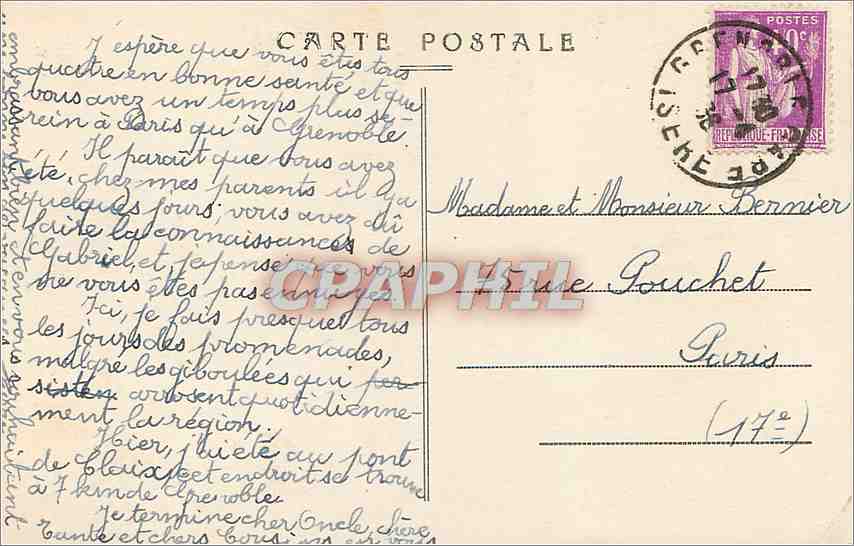 CARTE POSTALE
J'espère que vous êtes tous
quatre en bonne santé et que
vous avez un temps plus se-
rein à Paris qu'à Grenoble.
Il paraît que vous avez
été, chez mes parents il y a
quelques jours; vous avez dû
faire la connaissances de
Gabriel, et, je pense que vous
ne vous êtes pas ennuyés
Ici, je fais presque tous
les jours des promenades,
malgre les giboulées qui per-
sisten arrosent quotidienne-
ment la région.
Hier, j'ai été au pont
de Claix, cet endroit se trouve
à 7 km de Grenoble.
Je termine cher Oncle, chère
Tante et chers Cousins en vous
embrassant bien et en vous souhaitant
POSTES
REPUBLIQUE-FRANÇAISE
GRENOBLE GARE
ISERE
17
36
Madame et Monsieur Bernier
15 rue Pouchet
Paris
(17e)
CPAPHIL